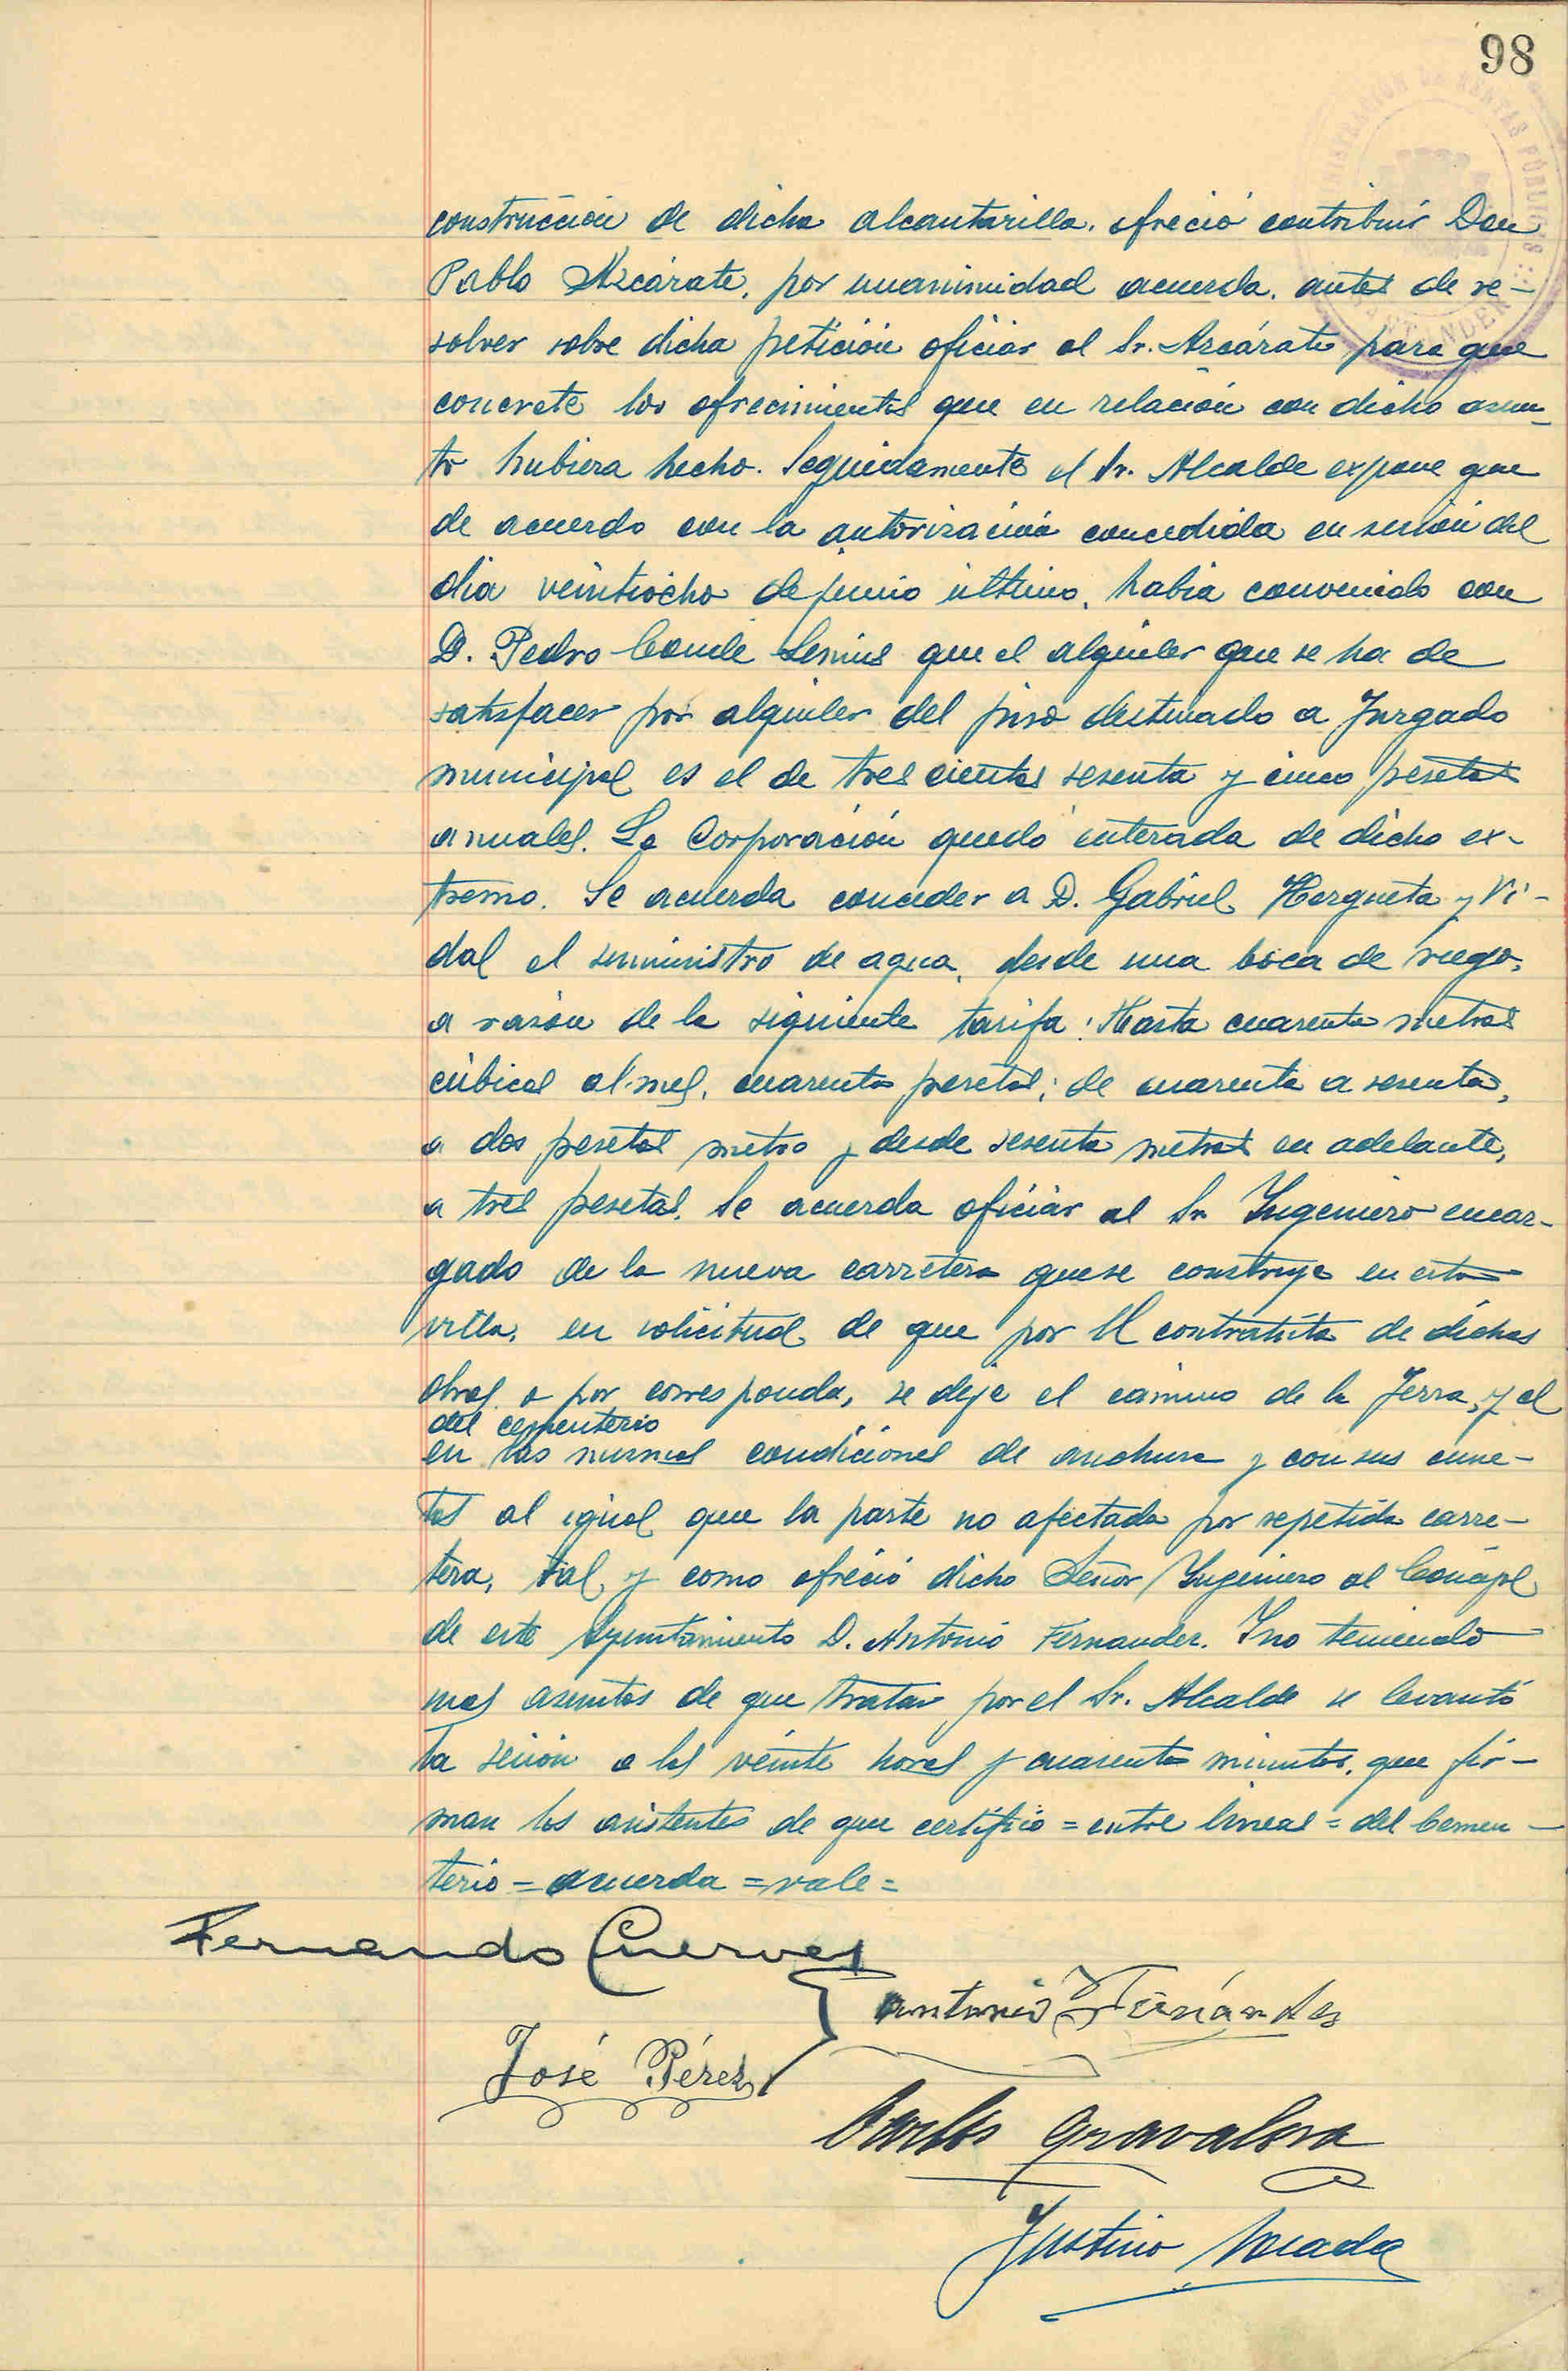 98
ADMINISTRACION DE RENTAS PÚBLICAS
SANTANDER
construcción de dicha alcantarilla, ofreció contribuir Don
Pablo Azcárate, por unanimidad acuerda, antes de re-
solver sobre dicha petición oficiar al Sr. Azcárate para que
concrete los ofrecimientos que en relación con dicho asun-
to hubiera hecho. Seguidamente el Sr. Alcalde expone que
de acuerdo con la autorización concedida en sesión del
dia veintiocho de junio último, habia convenido con
D. Pedro Conde que el alquiler que se ha de
satisfacer por alquiler del piso destinado a Juzgado
municipal es el de tres cientas sesenta y cinco pesetas
anuales. La Corporación quedó enterada de dicho ex-
tremo. Se acuerda conceder a D. Gabriel Hergueta y Vi-
dal el suministro de agua, desde una boca de riego,
a razón de la siguiente tarifa: Hasta cuarenta metros
cúbicos al mes, cuarenta pesetas; de cuarenta a sesenta,
a dos pesetas metro y desde sesenta metros en adelante,
a tres pesetas. Se acuerda oficiar al Sr. Ingeniero encar-
gado de la nueva carretera que se construye en esta
villa, en solicitud de que por el contratista de dichas
obras o por corresponda, se deje el camino de la Jerra, y el
del cementerio
en las mismas condiciones de anchura y con sus cune-
tas al igual que la parte no afectada por repetida carre-
tera, tal y como ofreció dicho Señor Ingeniero al Concejal
de este Ayuntamiento D. Antonio Fernandez. Y no teniendo
mas asuntos de que tratar por el Sr. Alcalde se levantó
la sesión a las veinte horas y cuarenta minutos, que fir-
man los asistentes de que certifico = entre lineas = del Cemen-
terio = acuerda = vale =
Fernando Cuerves
Antonio Fernández
José Pérez
Carlos Gravalosa
Justino